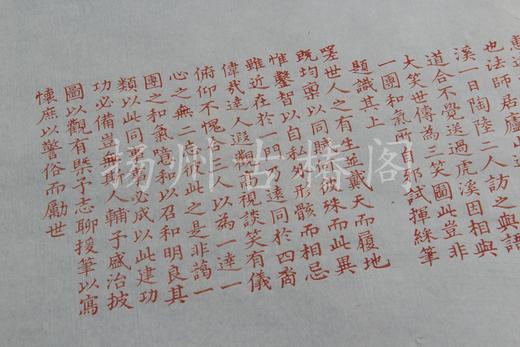 也法師居廬山送
溪一日陶陸二人訪之與語
道合不覺送過虎溪因相與
大笑世傳為三笑圖此豈非
一團和氣所自邪試揮綵筆
題識其上
嗟世人之有生並戴天而履地
既均稟以同賦何彼殊而此異
惟鑿智以自私外形骸而相忌
雖近在於一門乃遠同於四裔
偉哉達人遐觀高視談笑有儀
俯仰不愧合三人以為一達一
心之無二忘彼此之是非藹一
團之和氣噫和以召和明良其
類以此同事事必成以此建功
功必備豈無斯人輔予盛治披
圖以觀有槩予志聊援筆以寫
懷庶以警俗而勵世
扬州古椿阁